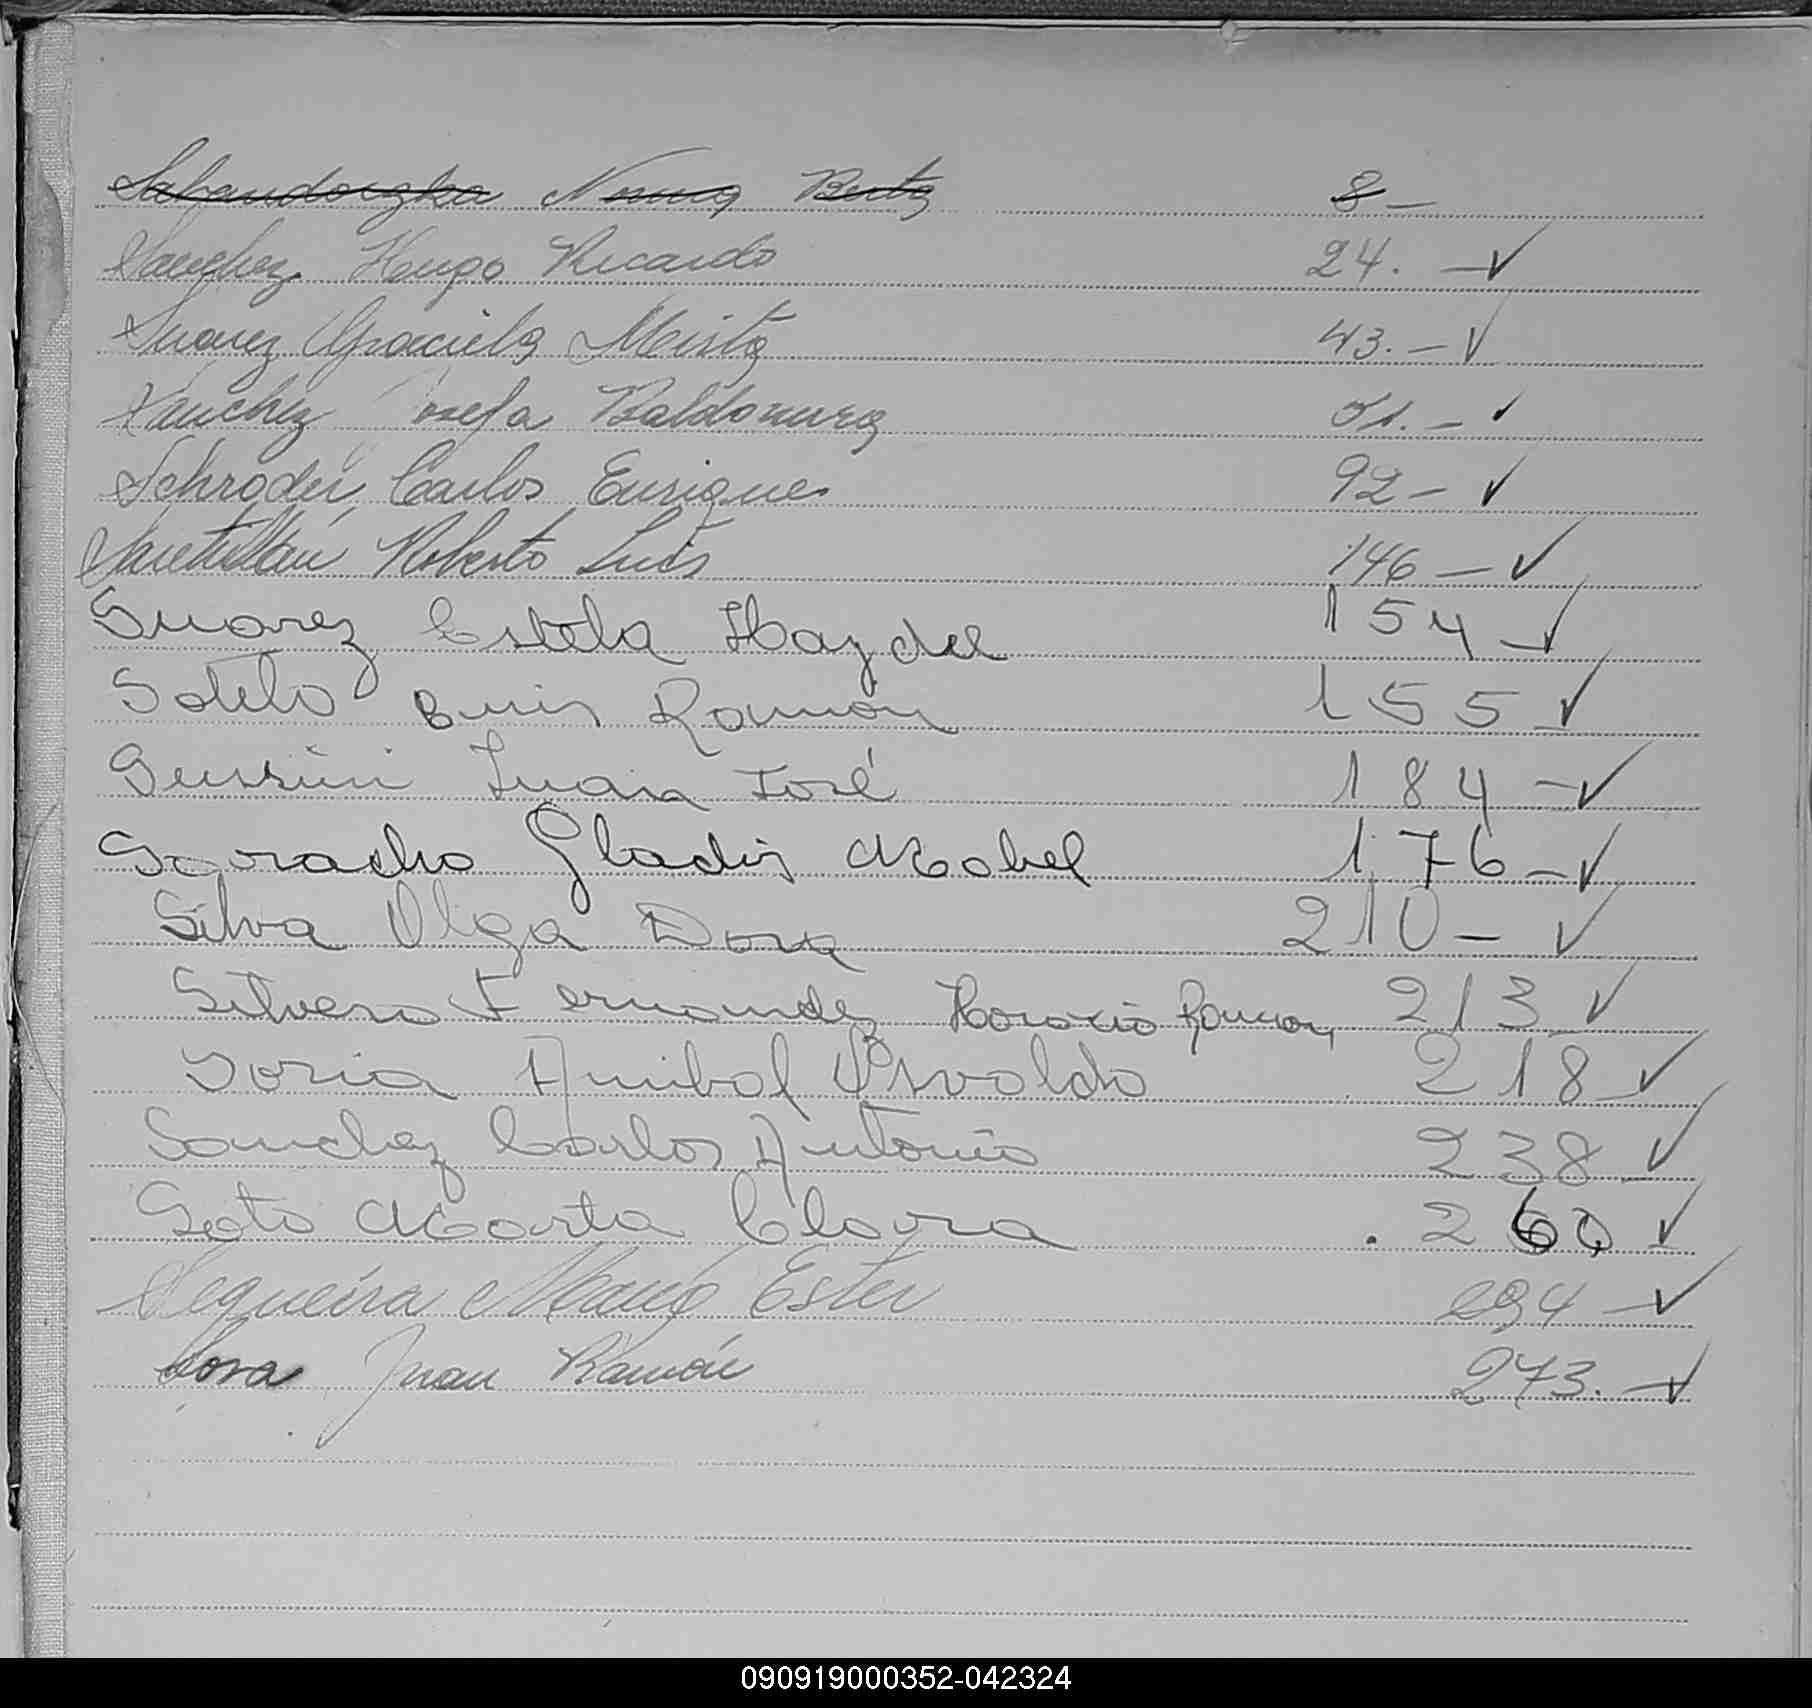 Norma Berta 8 -
Sanchez Hugo Ricardo 24. - ✓
Suarez Graciela Mirta 43. - ✓
Sanchez Josefa Baldomera 51. - ✓
Schroder, Carlos Enrique 92 - ✓
Santillán, Roberto Luis 146 - ✓
Suarez Estela Haydel 154 - ✓
Sotelo Luis Ramon 155 - ✓
Juan José 184 - ✓
Saracho Gladis Mabel 176 - ✓
Silva Olga Dora 210 - ✓
Silvera Fernandez Horacio Ramon 213 - ✓
Soria Anibal Osvaldo 218 - ✓
Sanchez Carlos Antonio 238 - ✓
Soto Marta Clara 260 ✓
Sequeira Ester 294 - ✓
Sosa Juan Ramón 273. - ✓
090919000352-042324